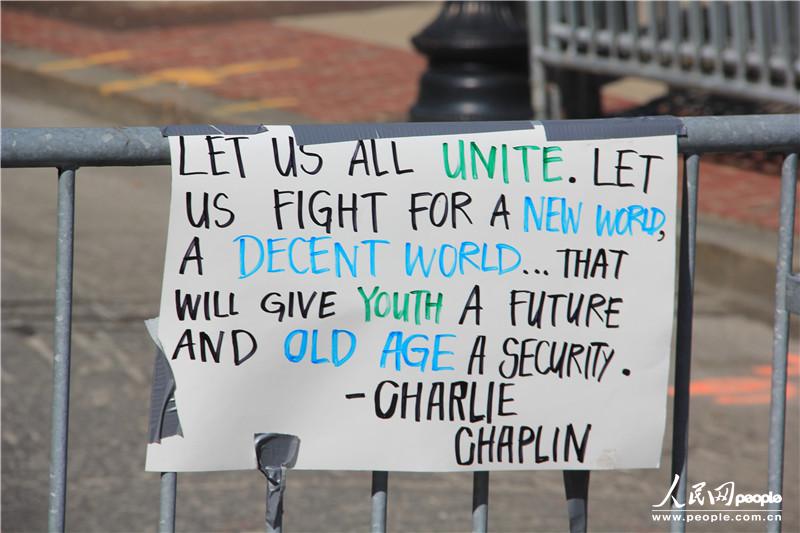 LET US ALL UNITE. LET
US FIGHT FOR A NEW WORLD,
A DECENT WORLD... THAT
WILL GIVE YOUTH A FUTURE
AND OLD AGE A SECURITY.
- CHARLIE
CHAPLIN
人民网 people
www.people.com.cn